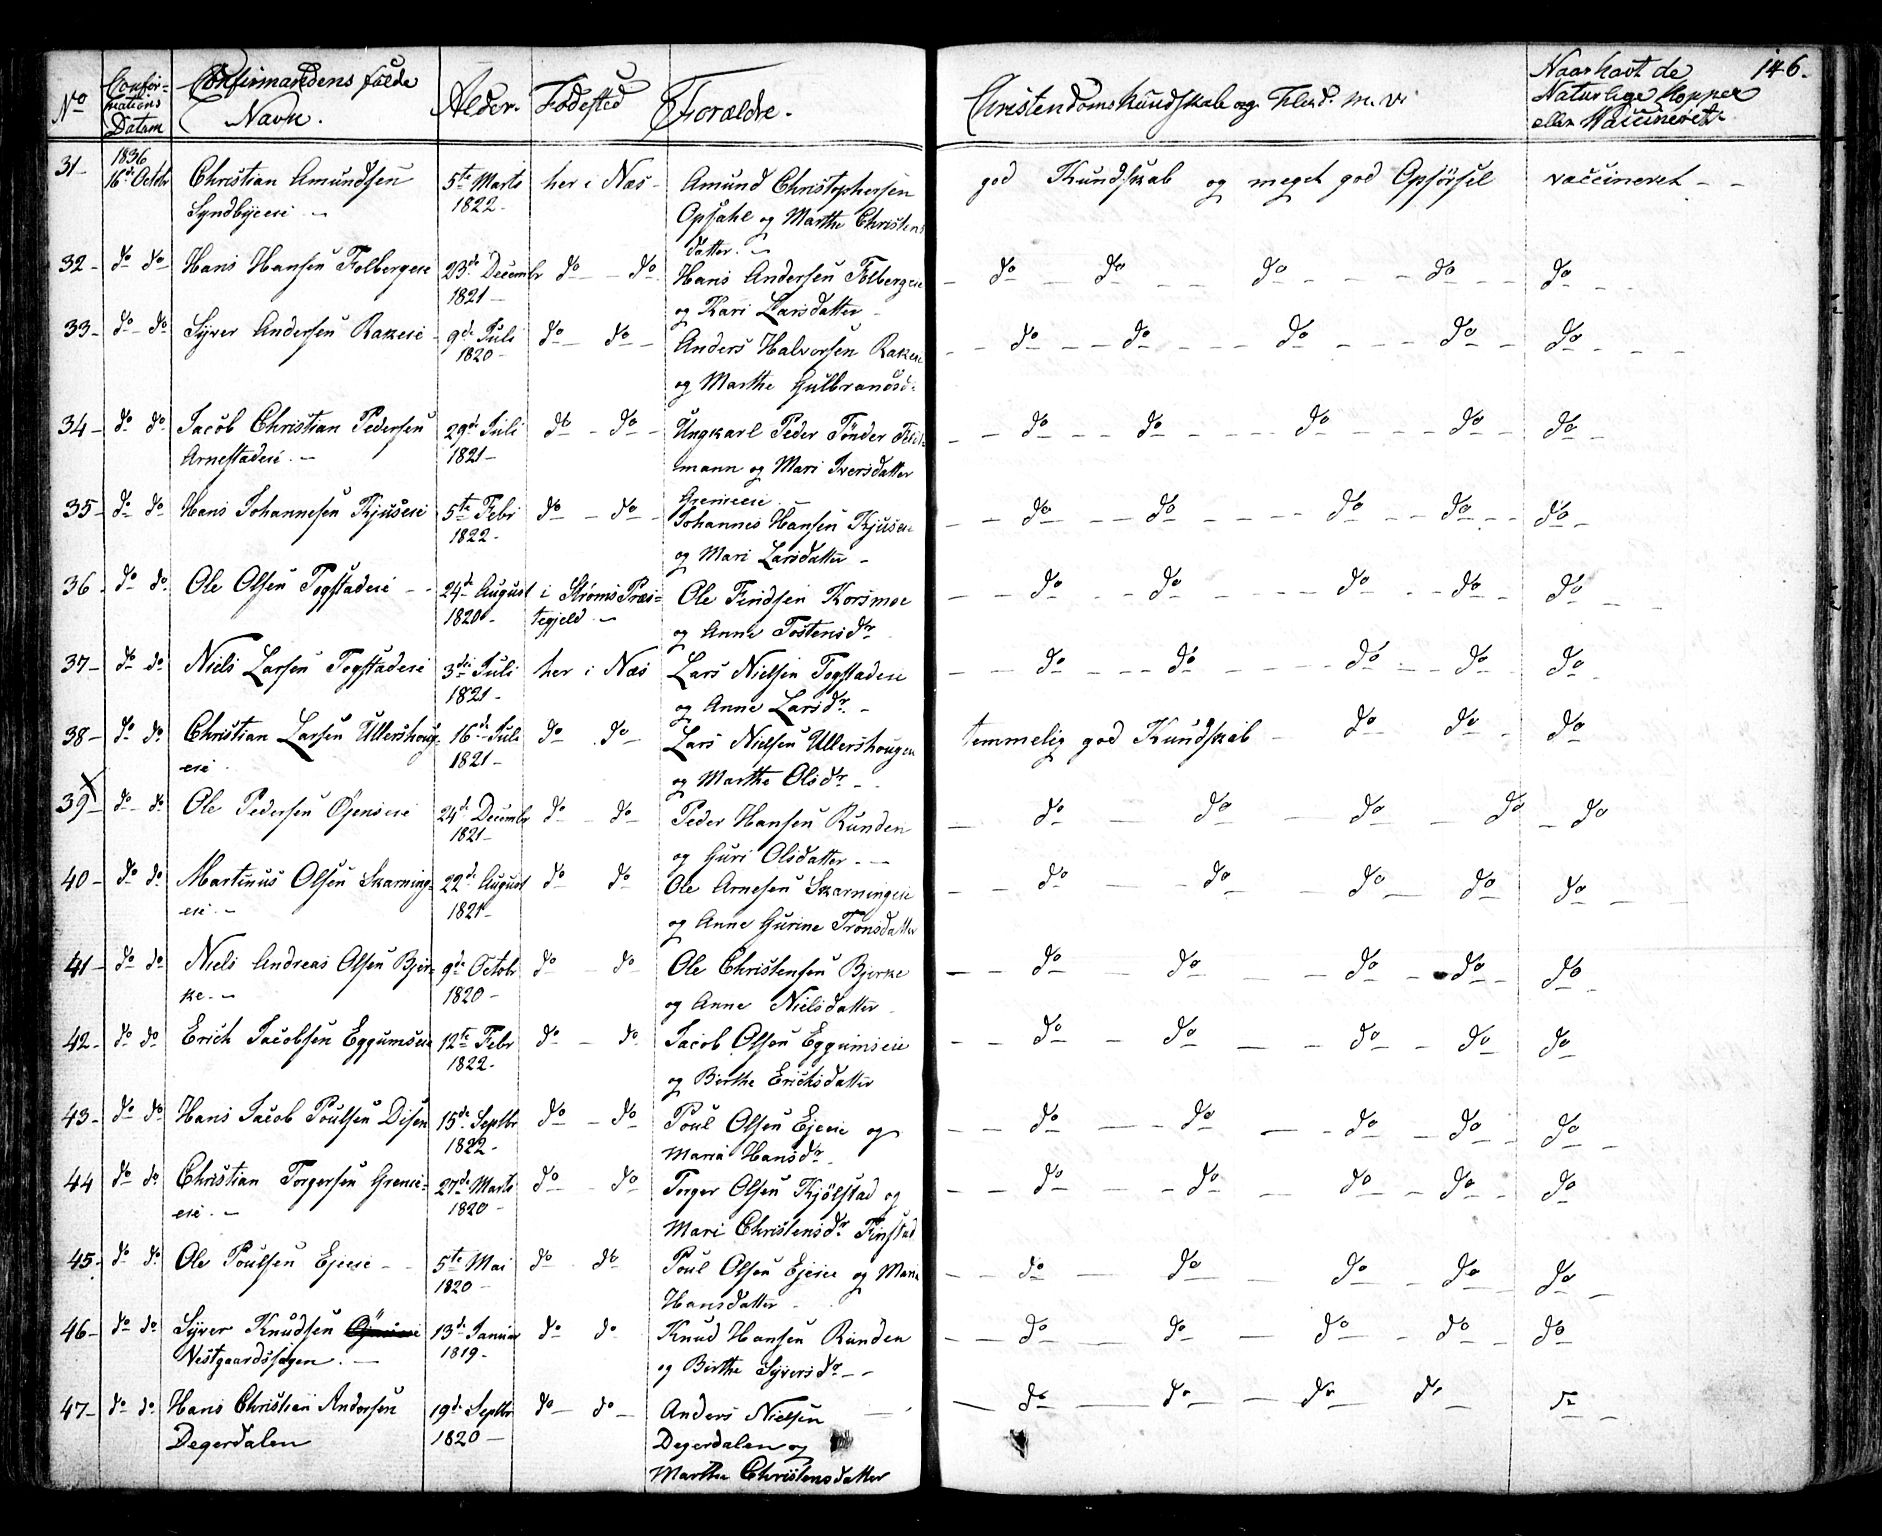 146.
No Confirmations Datum Confirmandens fulde Navn. Alder. Fødested Forældre. Christendoms Kundskab og Flid. m. v. Naar havt de Naturlige Kopper eller Vaccineret
31- 1836 16de Octbr Christian Amundsen 5te Marts her i Næs- Amund Christophersen god Kundskab og meget god Opførsel vaccineret - -
Syndbyeeie - 1822- Opsahl og Marthe Christens
datter. -
32- do do Hans Hansen Folbergeie 23de Decembr do - do Hans Andersen Folbergeie do do do do do
1821- og Kari Larsdatter -
33- do - do Syver Andersen Rakeeie 9de Juli do - do - Anders Halvorsen Rakeeie do do do do do
1820- og Marthe Gulbrandsd-
34- do do Jacob Christian Pedersen 29de Juli do - do - Ungkarl Peder Tønder do do do do do
Arnestadeie. - 1821- mann og Mari Iversdatter
Greneeie
35- do do Hans Johannesen Kjuseie 5te Febr do - do - Johannes Hansen Kjuseie do do do do do
1822- og Mari Larsdatter -
36- do do. Ole Olsen Togstadeie - - 24de August i Strøms Præs- Ole Findsen Korsmoe do do do do do
1820- tegjeld - og Anne Tostensdr
37- do do Niels Larsen Togstadeie 3die Juli her i Næs Lars Nielsen Togstadeie do do do do do
1821- og Anne Larsdr. -
38- do do Christian Larsen Ullershoug- 16de Juli do do- Lars Nielsen Ullershougen temmelig god Kundskab - do do do
eie. 1821- og Marthe Olsdr - -
39- do- do Ole Pedersen Øgenseie 24de Decembr do - do Peder Hansen Runden do do do do do
1821- og Guri Olsdatter - -
40- do do Martinus Olsen Skarning- 22de August do do Ole Arnesen Skarningeie do do do do do
eie. - 1821- og Anne Gurine Tronsdatter
41- do do Niels Andreas Olsen Bjer- 9de Octobr do - do Ole Christensen Bjerke do do do do do
ke. - 1820- og Anne Nielsdatter
42- do do Erich Jacobsen Eggumseie 12te Febr do - do Jacob Olsen Eggumseie do do do do do
1822- og Birthe Erichsdatter
43- do do Hans Jacob Poulsen Disen 15de Septbr do - do Poul Olsen Ejeeie og do do do do do
1822- Maria Hansdr.
44 do do. Christian Torgersen Grene- 27de Marts do - do Torger Olsen Kjølstad og do do do do do
eie. - 1820- Mari Christensdr Finstad
45- do do. Ole Poulsen Ejeeie - - 5te Mai do do Poul Olsen Ejeeie og Maria do do do do do
1820- Hansdatter -
46- do do. Syver Knudsen 13de Januar do do Knud Hansen Runden do do do do do
Nestgaardshagen. - 1819- og Birthe Syversdr - -
47- do do. Hans Christian Andersen 19de Septbr do- do - Anders Nielsen do do do do do
Degerdalen 1820- Degerdalen og
Marthe Christensdatter